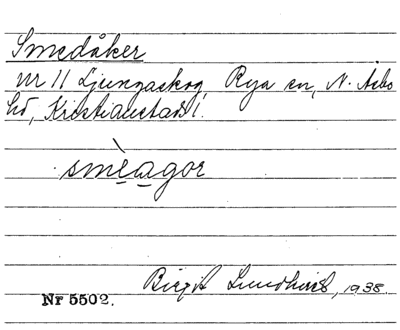 Smedåker
nr 11 Ljungaskog, Rya sn, N. Åsbo
hd, Kristianstads l.
smèagor
Birgit Lundhvist, 1938.
Nr 5502.